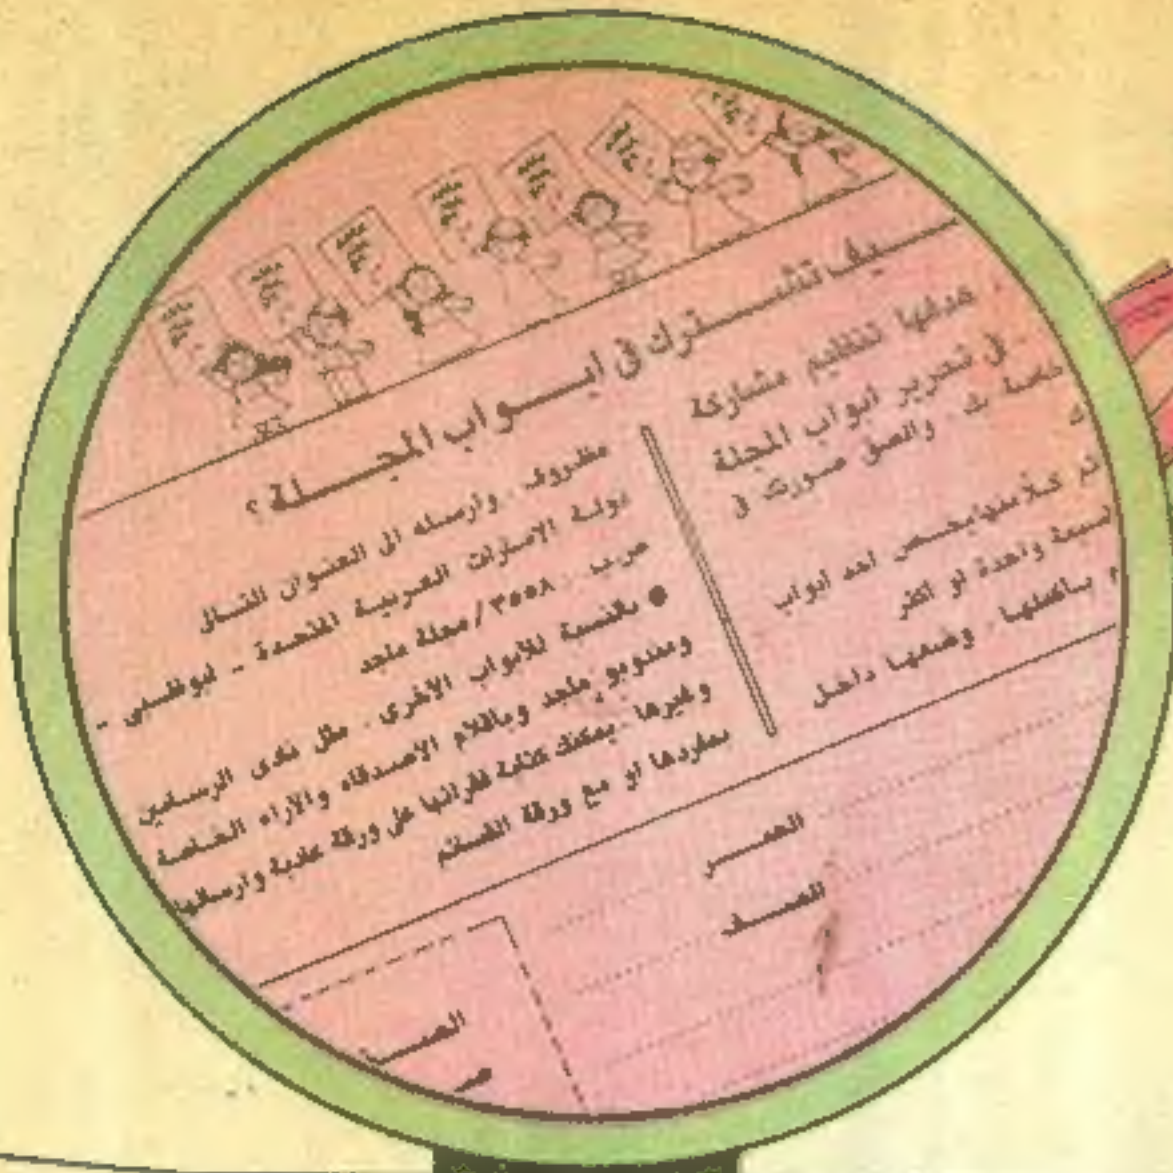 ـيف تشـــترك في أبـــواب المجـــلة ؟
هدفها تنظيم مشاركة
في تحرير أبواب المجلة
خاصة بك . والصق صورتك في
ك
كلا منها يخص أحد أبواب
واحدة أو أكثر
بأكملها . وضعها داخل
مظروف . وأرسله الى العنوان التالي
دولة الامارات العربية المتحدة - أبوظبي -
ص.ب : ٣٥٥٨ / مجلة ماجد
● بالنسبة للأبواب الأخرى . مثل نادي الرسامين
ومندوبو ماجد وبأقلام الأصدقاء والآراء الخاصة
وغيرها . يمكنك كتابة فقراتها على ورقة عادية وارسالها
بمفردها أو مع ورقة القسائم
العمـــر
الصـــف